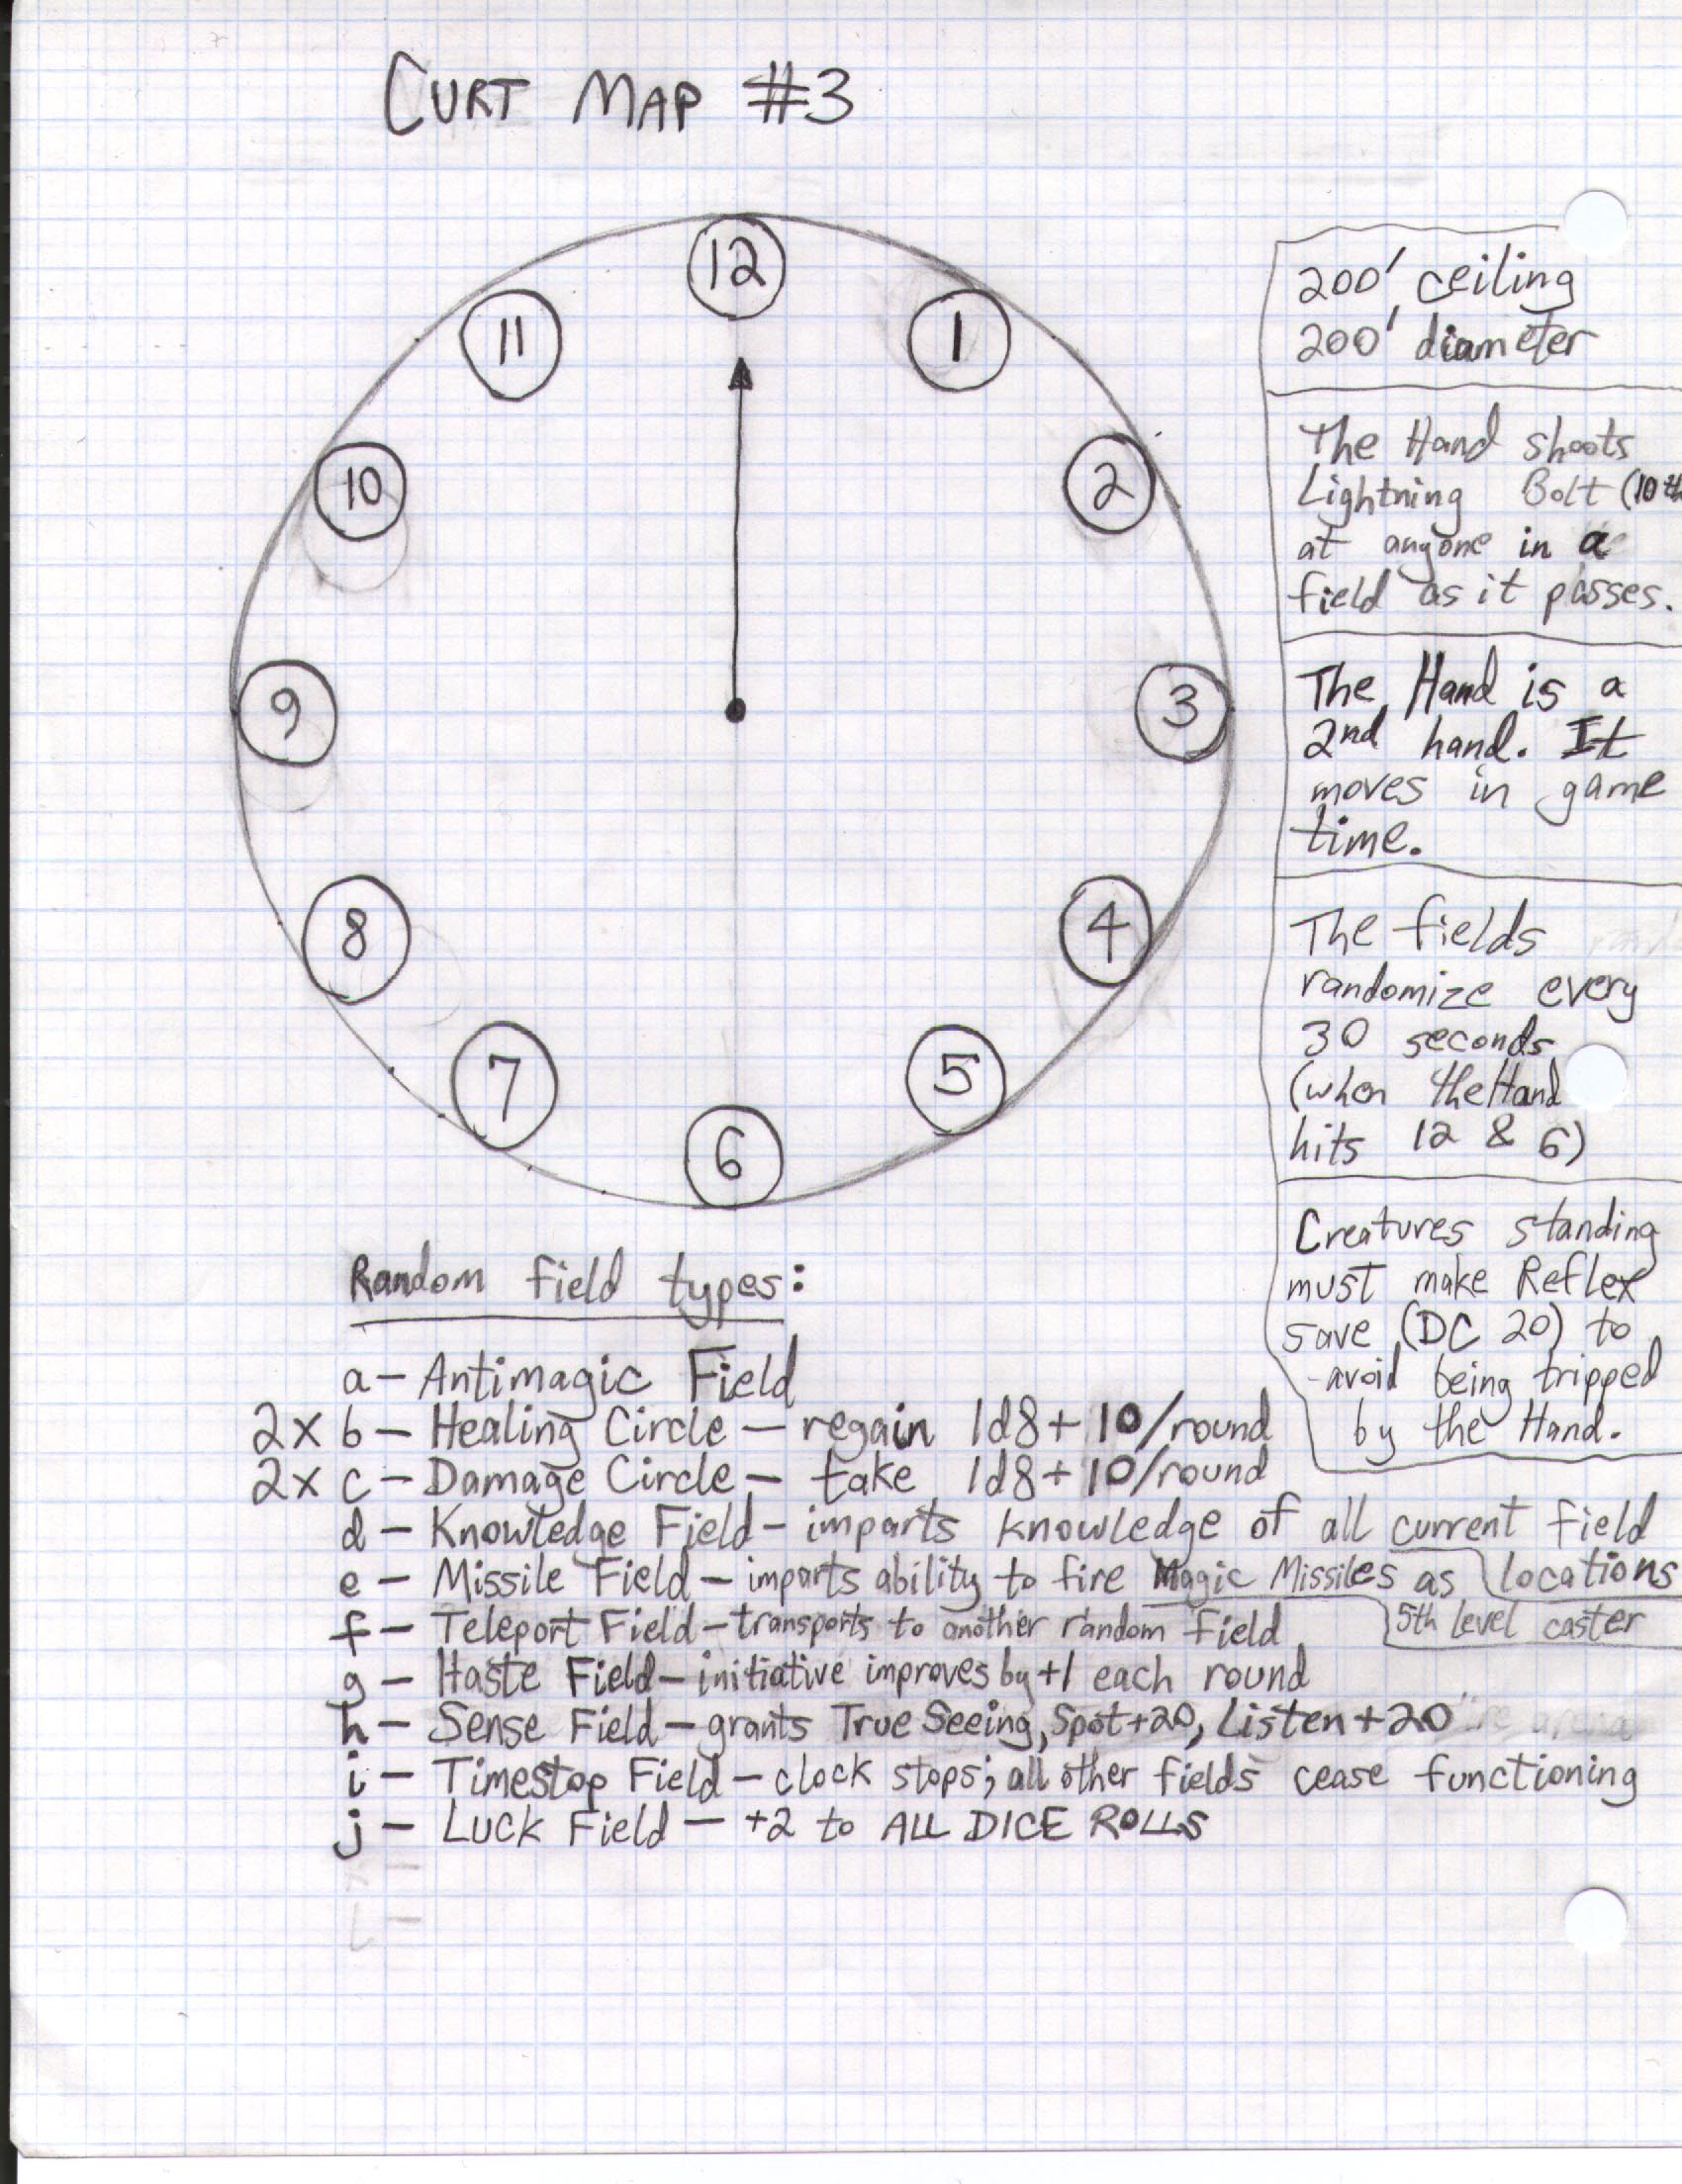 CURT MAP #3
12
11
1
10
2
9
3
8
4
7
5
6
200' ceiling
200' diameter
The Hand shoots
Lightning Bolt (10th
at anyone in a
field as it passes.
The Hand is a
2nd hand. It
moves in game
time.
The fields
randomize every
30 seconds
(when the Hand
hits 12 & 6)
Creatures standing
must make Reflex
save (DC 20) to
avoid being tripped
by the Hand.
Random field types:
a - Antimagic Field
2x b - Healing Circle - regain 1d8+10/round
2x c - Damage Circle - take 1d8+10/round
d - Knowledge Field - imparts knowledge of all current field
locations
e - Missile Field - imparts ability to fire Magic Missiles as
5th level caster
f - Teleport Field - transports to another random field
g - Haste Field - initiative improves by +1 each round
h - Sense Field - grants True Seeing, Spot+20, Listen+20
i - Timestop Field - clock stops; all other fields cease functioning
j - Luck Field - +2 to ALL DICE ROLLS